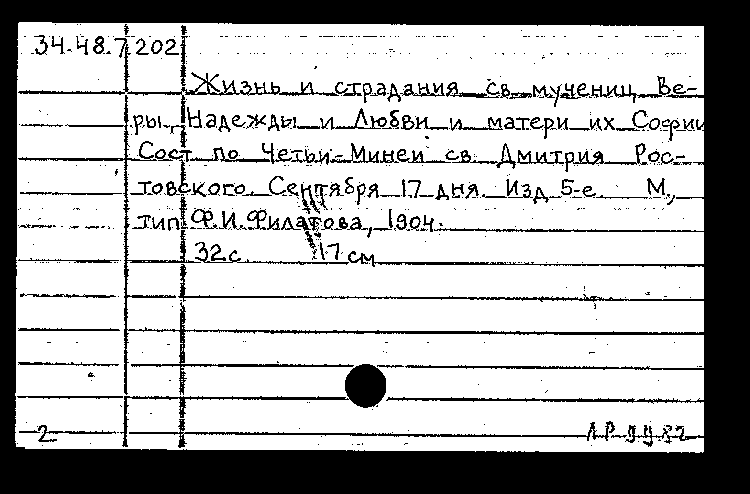 34.48.7.202
Жизнь и страдания св. мучениц Ве-
ры, Надежды и Любви и матери их Софии
Сост. по Четьи-Минеи св. Дмитрия Рос-
товского. Сентября 17 дня. Изд. 5-е. М.,
тип. Ф.И.Филатова, 1904.
32 с. 17 см
2